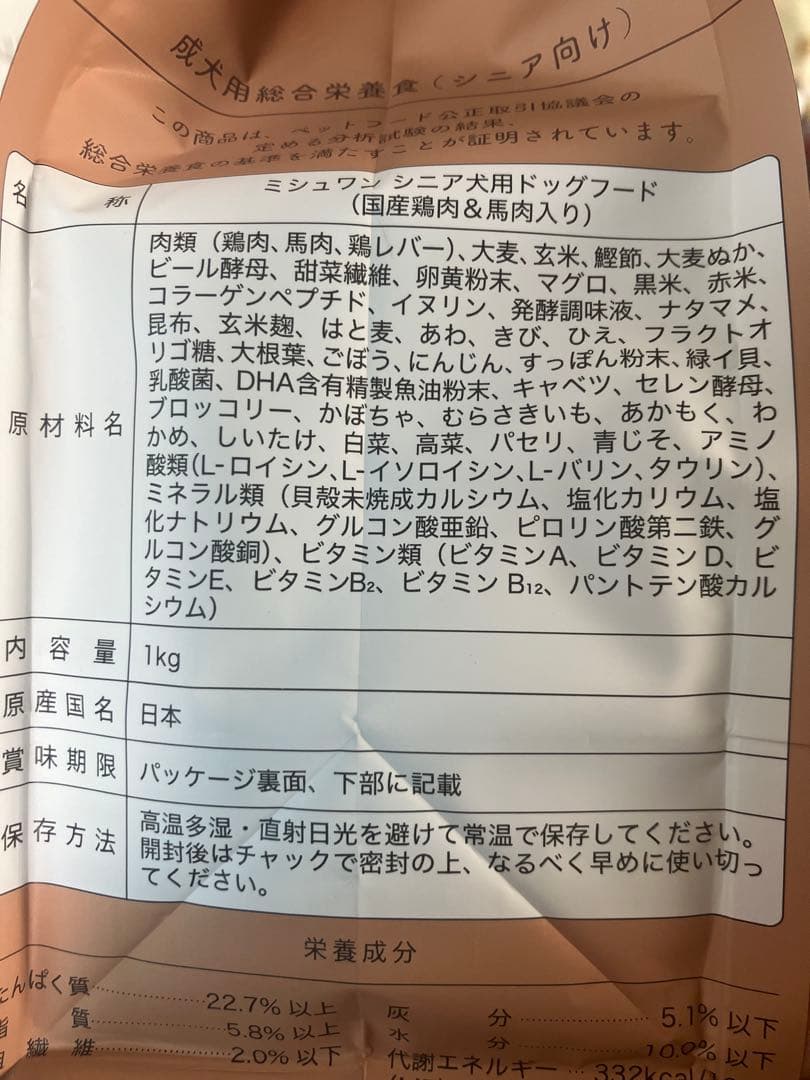 成犬用総合栄養食(シニア向け)
この商品は、ペットフード公正取引協議会の
定める分析試験の結果、
総合栄養食の基準を満たすことが証明されています。
名 称 ミシュワン シニア犬用ドッグフード
(国産鶏肉&馬肉入り)
原材料名
肉類(鶏肉、馬肉、鶏レバー)、大麦、玄米、鰹節、大麦ぬか、
ビール酵母、甜菜繊維、卵黄粉末、マグロ、黒米、赤米、
コラーゲンペプチド、イヌリン、発酵調味液、ナタマメ、
昆布、玄米麹、はと麦、あわ、きび、ひえ、フラクトオ
リゴ糖、大根葉、ごぼう、にんじん、すっぽん粉末、緑イ貝、
乳酸菌、DHA含有精製魚油粉末、キャベツ、セレン酵母、
ブロッコリー、かぼちゃ、むらさきいも、あかもく、わ
かめ、しいたけ、白菜、高菜、パセリ、青じそ、アミノ
酸類(L-ロイシン、L-イソロイシン、L-バリン、タウリン)、
ミネラル類(貝殻未焼成カルシウム、塩化カリウム、塩
化ナトリウム、グルコン酸亜鉛、ピロリン酸第二鉄、グ
ルコン酸銅)、ビタミン類(ビタミンA、ビタミンD、ビ
タミンE、ビタミンB₂、ビタミン B₁₂、パントテン酸カル
シウム)
内容量 1kg
原産国名 日本
賞味期限 パッケージ裏面、下部に記載
保存方法
高温多湿・直射日光を避けて常温で保存してください。
開封後はチャックで密封の上、なるべく早めに使い切っ
てください。
栄養成分
たんぱく質 22.7% 以上 灰 分 5.1% 以下
質 5.8% 以上 水 分 10.0% 以下
繊 維 2.0% 以下 代謝エネルギー 332kcal/